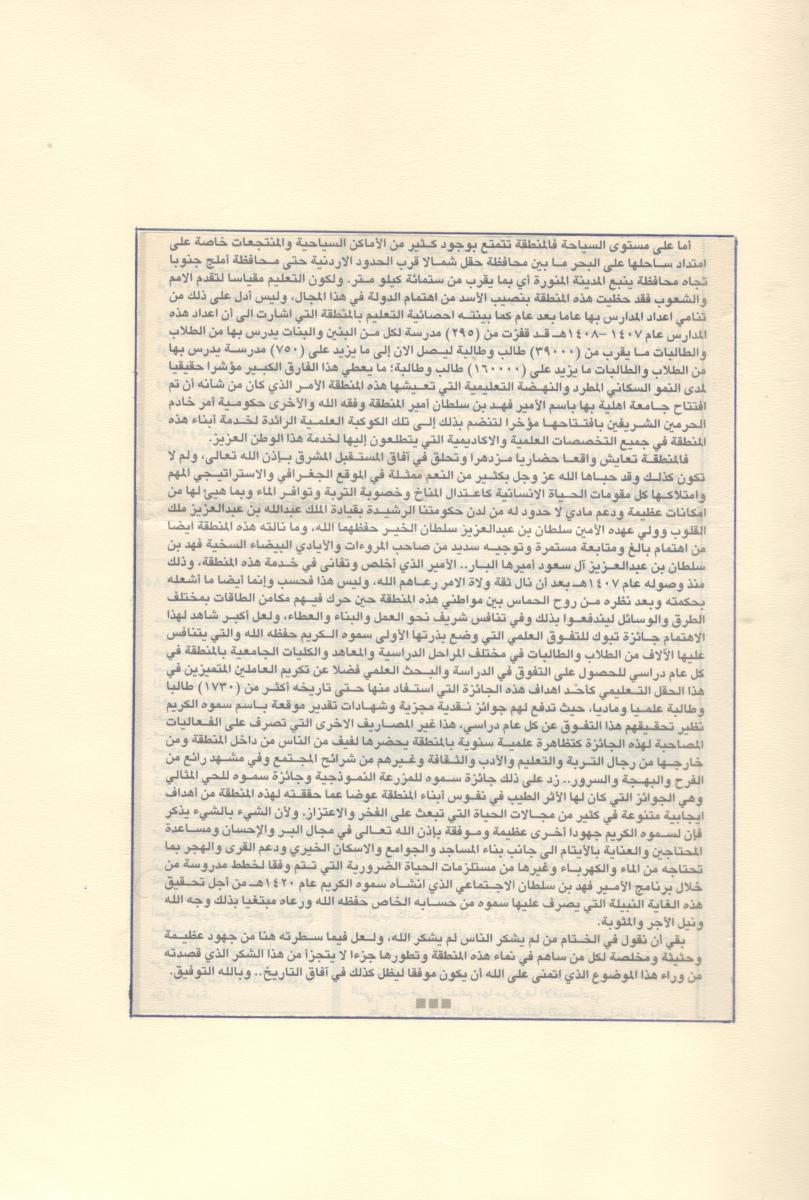 أما على مستوى السياحة فالمنطقة تتمتع بوجود كثير من الأماكن السياحية والمنتجعات خاصة على
امتداد ساحلها على البحر ما بين محافظة حقل شمالا قرب الحدود الاردنية حتى محافظة أملج جنوبا
تجاه محافظة ينبع المدينة المنورة أي بما يقرب من ستمائة كيلو متر. ولكون التعليم مقياسا لتقدم الامم
والشعوب فقد حظيت هذه المنطقة بنصيب الأسد من اهتمام الدولة في هذا المجال، وليس أدل على ذلك من
تنامي اعداد المدارس بها عاما بعد عام كما بينته احصائية التعليم بالمنطقة التي اشارت الى أن اعداد هذه
المدارس عام ١٤٠٧ -١٤٠٨هـ قد قفزت من (٢٩٥) مدرسة لكل من البنين والبنات يدرس بها من الطلاب
والطالبات ما يقرب من (٣٩٠٠٠) طالب وطالبة ليصل الان إلى ما يزيد على (٧٥٠) مدرسة يدرس بها
من الطلاب والطالبات ما يزيد على (١٦٠٠٠٠) طالب وطالبة؛ ما يعطي هذا الفارق الكبير مؤشرا حقيقيا
لمدى النمو السكاني المطرد والنهضة التعليمية التي تعيشها هذه المنطقة الأمر الذي كان من شانه أن تم
افتتاح جامعة اهلية بها باسم الأمير فهد بن سلطان أمير المنطقة وفقه الله والأخرى حكومية أمر خادم
الحرمين الشريفين بافتتاحها مؤخرا لتنضم بذلك إلى تلك الكوكبة العلمية الرائدة لخدمة أبناء هذه
المنطقة في جميع التخصصات العلمية والاكاديمية التي يتطلعون إليها لخدمة هذا الوطن العزيز.
فالمنطقة تعايش واقعا حضاريا مزدهرا وتحلق في آفاق المستقبل المشرق بإذن الله تعالى، ولم لا
تكون كذلك وقد حباها الله عز وجل بكثير من النعم ممثلة في الموقع الجغرافي والاستراتيجي المهم
وامتلاكها كل مقومات الحياة الانسانية كاعتدال المناخ وخصوبة التربة وتوافر الماء وبما هيئ لها من
امكانات عظيمة ودعم مادي لا حدود له من لدن حكومتنا الرشيدة بقيادة الملك عبدالله بن عبدالعزيز ملك
القلوب وولي عهده الأمين سلطان بن عبدالعزيز سلطان الخير حفظهما الله، وما نالته هذه المنطقة ايضا
من اهتمام بالغ ومتابعة مستمرة وتوجيه سديد من صاحب المروءات والأيادي البيضاء السخية فهد بن
سلطان بن عبدالعزيز آل سعود أميرها البار.. الأمير الذي أخلص وتفانى في خدمة هذه المنطقة، وذلك
منذ وصوله عام ١٤٠٧هـ بعد أن نال ثقة ولاة الامر رعاهم الله، وليس هذا فحسب وإنما أيضا ما أشعله
بحكمته وبعد نظره من روح الحماس بين مواطني هذه المنطقة حين حرك فيهم مكامن الطاقات بمختلف
الطرق والوسائل ليندفعوا بذلك وفي تنافس شريف نحو العمل والبناء والعطاء، ولعل أكبر شاهد لهذا
الاهتمام جائزة تبوك للتفوق العلمي التي وضع بذرتها الأولى سموه الكريم حفظه الله والتي يتنافس
عليها الآلاف من الطلاب والطالبات في مختلف المراحل الدراسية والمعاهد والكليات الجامعية بالمنطقة في
كل عام دراسي للحصول على التفوق في الدراسة والبحث العلمي فضلا عن تكريم العاملين المتميزين في
هذا الحقل التعليمي كأحد اهداف هذه الجائزة التي استفاد منها حتى تاريخه أكثر من (١٧٣٠) طالبا
وطالبة علميا وماديا، حيث تدفع لهم جوائز نقدية مجزية وشهادات تقدير موقعة باسم سموه الكريم
نظير تحقيقهم هذا التفوق عن كل عام دراسي، هذا غير المصاريف الاخرى التي تصرف على الفعاليات
المصاحبة لهذه الجائزة كتظاهرة علمية سنوية بالمنطقة يحضرها لفيف من الناس من داخل المنطقة ومن
خارجها من رجال التربة والتعليم والأدب والثقافة وغيرهم من شرائح المجتمع وفي مشهد رائع من
الفرح والبهجة والسرور.. زد على ذلك جائزة سموه للمزرعة النموذجية وجائزة سموه للحي المثالي
وهي الجوائز التي كان لها الأثر الطيب في نفوس أبناء المنطقة عوضا عما حققته لهذه المنطقة من أهداف
ايجابية متنوعة في كثير من مجالات الحياة التي تبعث على الفخر والاعتزاز. ولأن الشيء بالشيء يذكر
فإن لسموه الكريم جهودا أخرى عظيمة وموفقة بإذن الله تعالى في مجال البر والإحسان ومساعدة
المحتاجين والعناية بالأيتام الى جانب بناء المساجد والجوامع والاسكان الخيري ودعم القرى والهجر بما
تحتاجه من الماء والكهرباء وغيرها من مستلزمات الحياة الضرورية التي تتم وفقا لخطط مدروسة من
خلال برنامج الأمير فهد بن سلطان الاجتماعي الذي انشأه سموه الكريم عام ١٤٢٠هـ من أجل تحقيق
هذه الغاية النبيلة التي يصرف عليها سموه من حسابه الخاص حفظه الله ورعاه مبتغيا بذلك وجه الله
ونيل الأجر والمثوبة.
بقي أن نقول في الختام من لم يشكر الناس لم يشكر الله، ولعل فيما سطرته هنا من جهود عظيمة
وحثيثة ومخلصة لكل من ساهم في نماء هذه المنطقة وتطورها جزءا لا يتجزأ من هذا الشكر الذي قصدته
من وراء هذا الموضوع الذي اتمنى على الله أن يكون موفقا ليظل كذلك في آفاق التاريخ.. وبالله التوفيق.